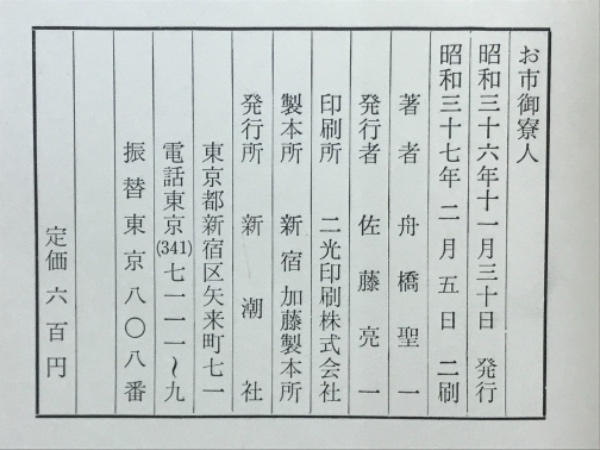 お市御寮人
昭和三十六年十一月三十日 発行
昭和三十七年 二 月 五 日 二刷
著者 舟橋聖一
発行者 佐藤亮一
印刷所 二光印刷株式会社
製本所 新宿加藤製本所
発行所 新潮社
東京都新宿区矢来町七一
電話東京(341)七一一一〜九
振替東京八〇八番
定価六百円